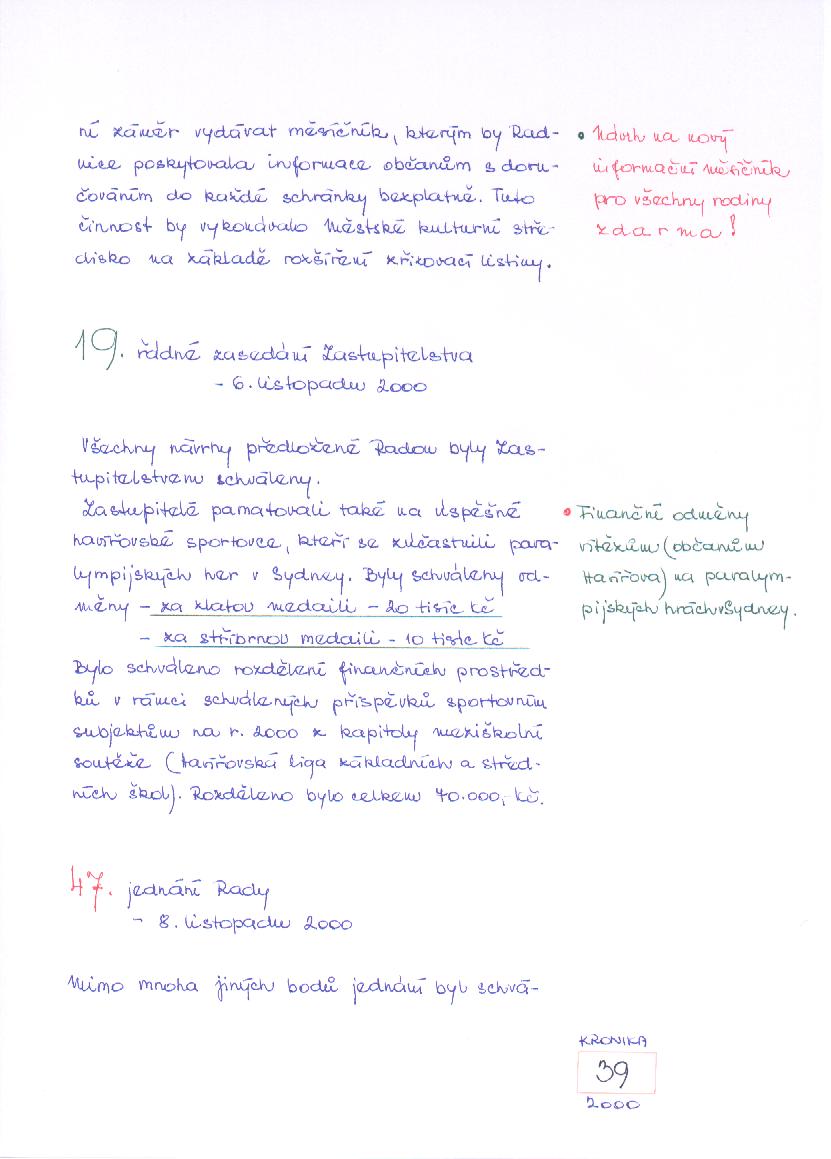 ní záměr vydávat měsíčník, kterým by Rad-
nice poskytovala informace občanům s doru-
čováním do každé schránky bezplatně. Tuto
činnost by vykonávalo Městské kulturní stře-
disko na základě rozšíření zřizovací listiny.
• Návrh na nový
informační měsíčník
pro všechny rodiny
zdarma!
19. řádné zasedání Zastupitelstva
- 6. listopadu 2000
Všechny návrhy předložené Radou byly Zas-
tupitelstvem schváleny.
Zastupitelé pamatovali také na úspěšné
havířovské sportovce, kteří se zúčastnili para-
lympijských her v Sydney. Byly schváleny od-
měny - za zlatou medaili - 20 tisíc Kč
- za stříbrnou medaili - 10 tisíc Kč
Bylo schváleno rozdělení finančních prostřed-
ků v rámci schválených příspěvků sportovním
subjektům na r. 2000 z kapitoly meziškolní
soutěže (Havířovská liga základních a střed-
ních škol). Rozděleno bylo celkem 40.000,- Kč.
• Finanční odměny
vítězům (občanům
Havířova) na paralym-
pijských hrách v Sydney.
47. jednání Rady
- 8. listopadu 2000
Mimo mnoha jiných bodů jednání byl schvá-
KRONIKA
39
2000